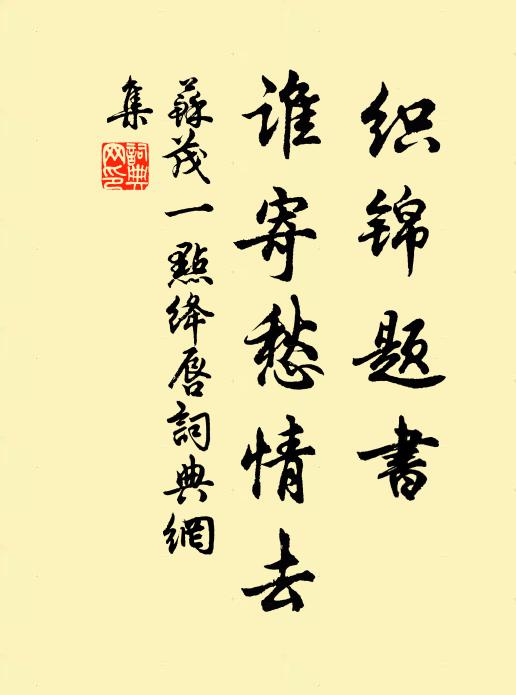 织锦题書
谁寄愁情去
蘇茂一點绛唇詞典網
集
詞典网印